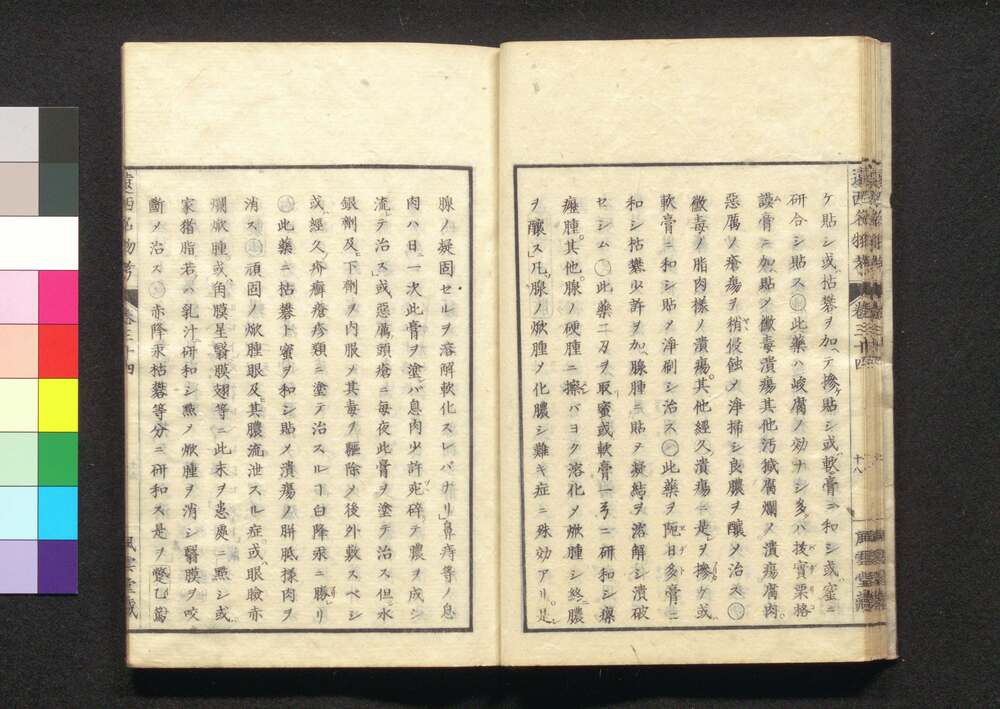 ケ貼シ或枯礬ヲ加ヘテ摻貼シ或軟膏ニ和シ或蜜ニ
研合シ貼ス此藥ハ峻腐ノ効ナシ多ハ抜實栗格
謨膏ニ加貼メ黴毒潰瘍其他汚搣腐爛ノ潰瘍腐肉
惡厲ノ瘡瘍ヲ稍侵蝕メ淨掃シ良膿ヲ醸メ治ス
黴毒ノ脂肉様ノ潰瘍其他經久潰瘍ニ是ヲ摻ケ或
軟膏ニ和シ貼メ淨刷シ治ス此藥ヲ扼日多膏ニ
和シ枯礬少許ヲ加腺腫ニ貼ヲ凝結ヲ溶解シ潰破
セシム此藥二刄ヲ取蜜或軟膏一ニ研和シ瘰
癧腫其他腺ノ硬腫ニ擦バヨク溶化メ焮腫シ終膿
ヲ醸ス凡腺ノ焮腫メ化膿シ難キ症ニ殊効アリ是
遠西名物考
卷三十四
十八
風雲堂藏
腺ノ凝固セルヲ溶解軟化スレバナリ鼻痔等ノ息
肉ハ日一次此膏ヲ塗バ息肉少許宛碎テ膿ヲ成シ
流テ治ス或惡厲頭瘡ニ毎夜此膏ヲ塗テ治ス但水
銀劑及下劑ヲ内服メ其毒ヲ驅除メ後外敷スベシ
或經久疥癬瘡疹類ニ塗テ治スルヿ白降汞ニ勝リ
此藥ニ枯礬ト蜜ヲ和シ貼メ潰瘍ノ胼胝様肉ヲ
消ス頑固ノ焮腫眼及其膿流泄スル症或眼瞼赤
爛焮腫或角膜星翳膜翅等ニ此末ヲ患處ニ點シ或
家猪脂若ハ乳汁研和シ點メ焮腫ヲ消シ翳膜ヲ咬
斷メ治ス赤降汞枯礬等分ニ研和ス是ヲ鼈氐鷲
遠西名物考
卷三十四
風雲堂藏